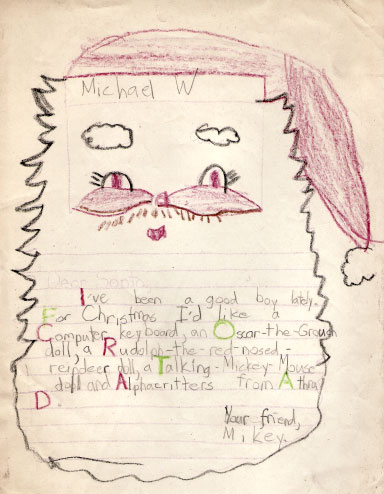 Michael W
Dear Santa,
I've been a good boy lately.
For Christmas I'd like a
Computer keyboard, an Oscar-the-Grouch
doll, a Rudolph-the-red-nosed-
reindeer doll, a Talking-Mickey-Mouse
doll and Alphacritters from A thru
D.
Your friend,
Mikey.